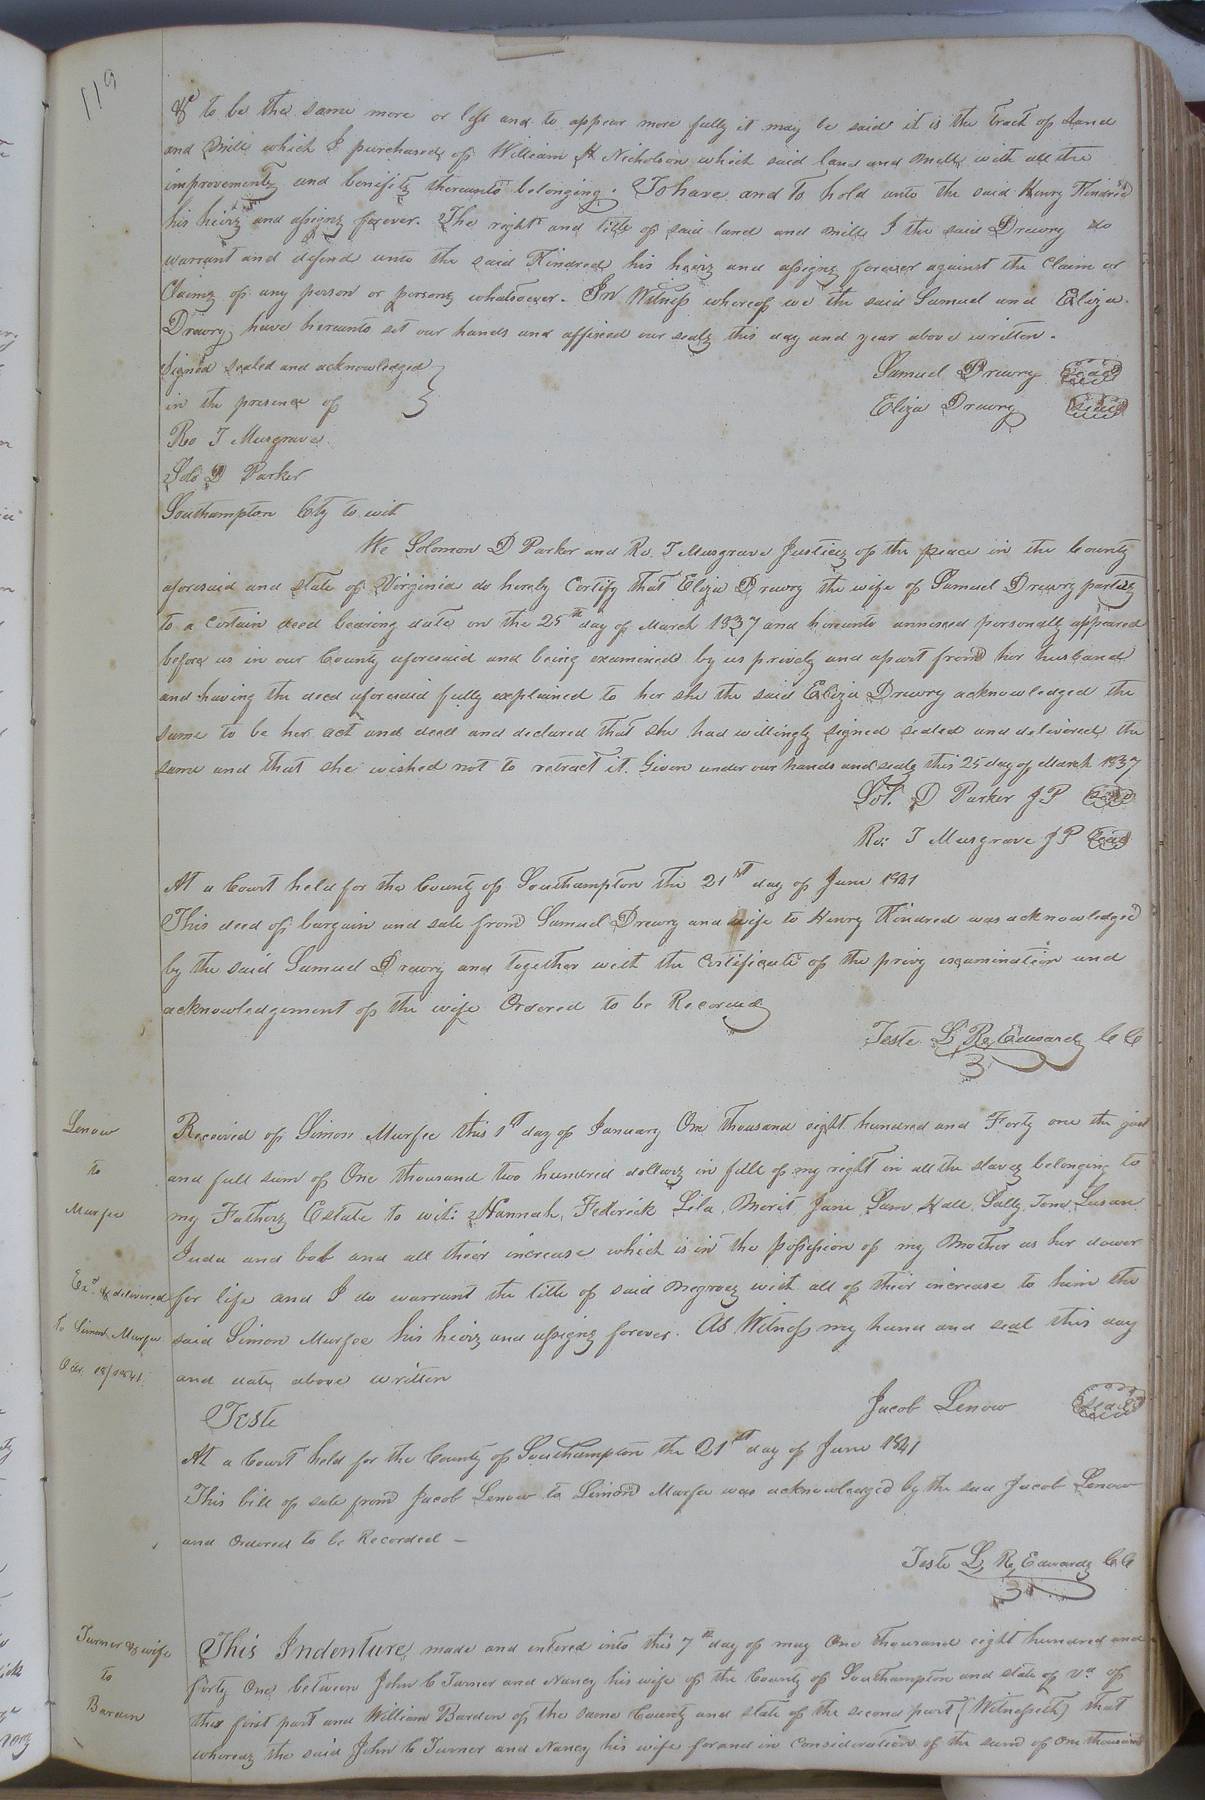 119
&c to be the same more or less and to appear more fully it may be said it is the tract of Land
and Mill which I purchased of William H Nicholson which said land and mill with all the
improvements and benifits thereunto belonging. To have and to hold unto the said Henry Kindred
his heirs and assigns forever. The right and title of said land and mill I the said Drewry do
warrant and defend unto the said Kindred his heirs and assigns forever against the claim or
Claims of any person or persons whatsoever. In Witness whereof we the said Samuel and Eliza
Drewry have hereunto set our hands and affixed our seals this day and year above written.
Signed sealed and acknowledged
in the presence of
Samuel Drewry Seal
Eliza Drewry Seal
Ro T Musgrave
Solo D Parker
Southampton Cty to wit
We Solomon D Parker and Ro. T Musgrave Justices of the peace in the County
aforesaid and state of Virginia do hereby Certify that Eliza Drewry the wife of Samuel Drewry parties
to a certain deed bearing date on the 25th day of March 1837 and hereunto annexed personally appeared
before us in our County aforesaid and being examined by us privily and apart from her husband
and having the deed aforesaid fully explained to her she the said Eliza Drewry acknowledged the
same to be her act and deed and declared that she had willingly signed sealed and delivered the
same and that she wished not to retract it. Given under our hands and seals this 25 day of March 1837
Sol. D Parker JP Seal
Ro: T Musgrave JP Seal
At a Court held for the County of Southampton the 21st day of June 1841
This deed of bargain and sale from Samuel Drewry and wife to Henry Kindred was acknowledged
by the said Samuel Drewry and together with the Certificate of the privy examination and
acknowledgement of the wife Ordered to be Recorded
Teste L R Edwards CC
Lenow
to
Murfee
Exd. & delivered
to Simon Murfee
Received of Simon Murfee this 1st day of January One thousand eight hundred and Forty one the just
and full sum of One thousand two hundred dollars in full of my right in all the slaves belonging to
my Fathers Estate to wit: Hannah, Federick Lila, Merit, Jane Sam, Kate, Sally, Tom, Susan
Juda and bob and all their increase which is in the possession of my Mother as her dower
for life and I do warrant the title of said negroes with all of their increase to him the
said Simon Murfee his heirs and assigns forever. As Witness my hand and seal this day
and date above written
Jacob Lenow Seal
Teste
At a Court held for the County of Southampton the 21st day of June 1841
This bill of sale from Jacob Lenow to Simon Murfee was acknowledged by the said Jacob Lenow
and Ordered to be Recorded —
Teste L R Edwards CC
Turner & wife
to
Barden
This Indenture made and entered into this 7th day of may One thousand eight hundred and
forty One between John C Turner and Nancy his wife of the County of Southampton and state of Va of
the first part and William Barden of the same County and state of the second part (Witnesseth) that
whereas the said John C Turner and Nancy his wife for and in consideration of the sum of One thousand